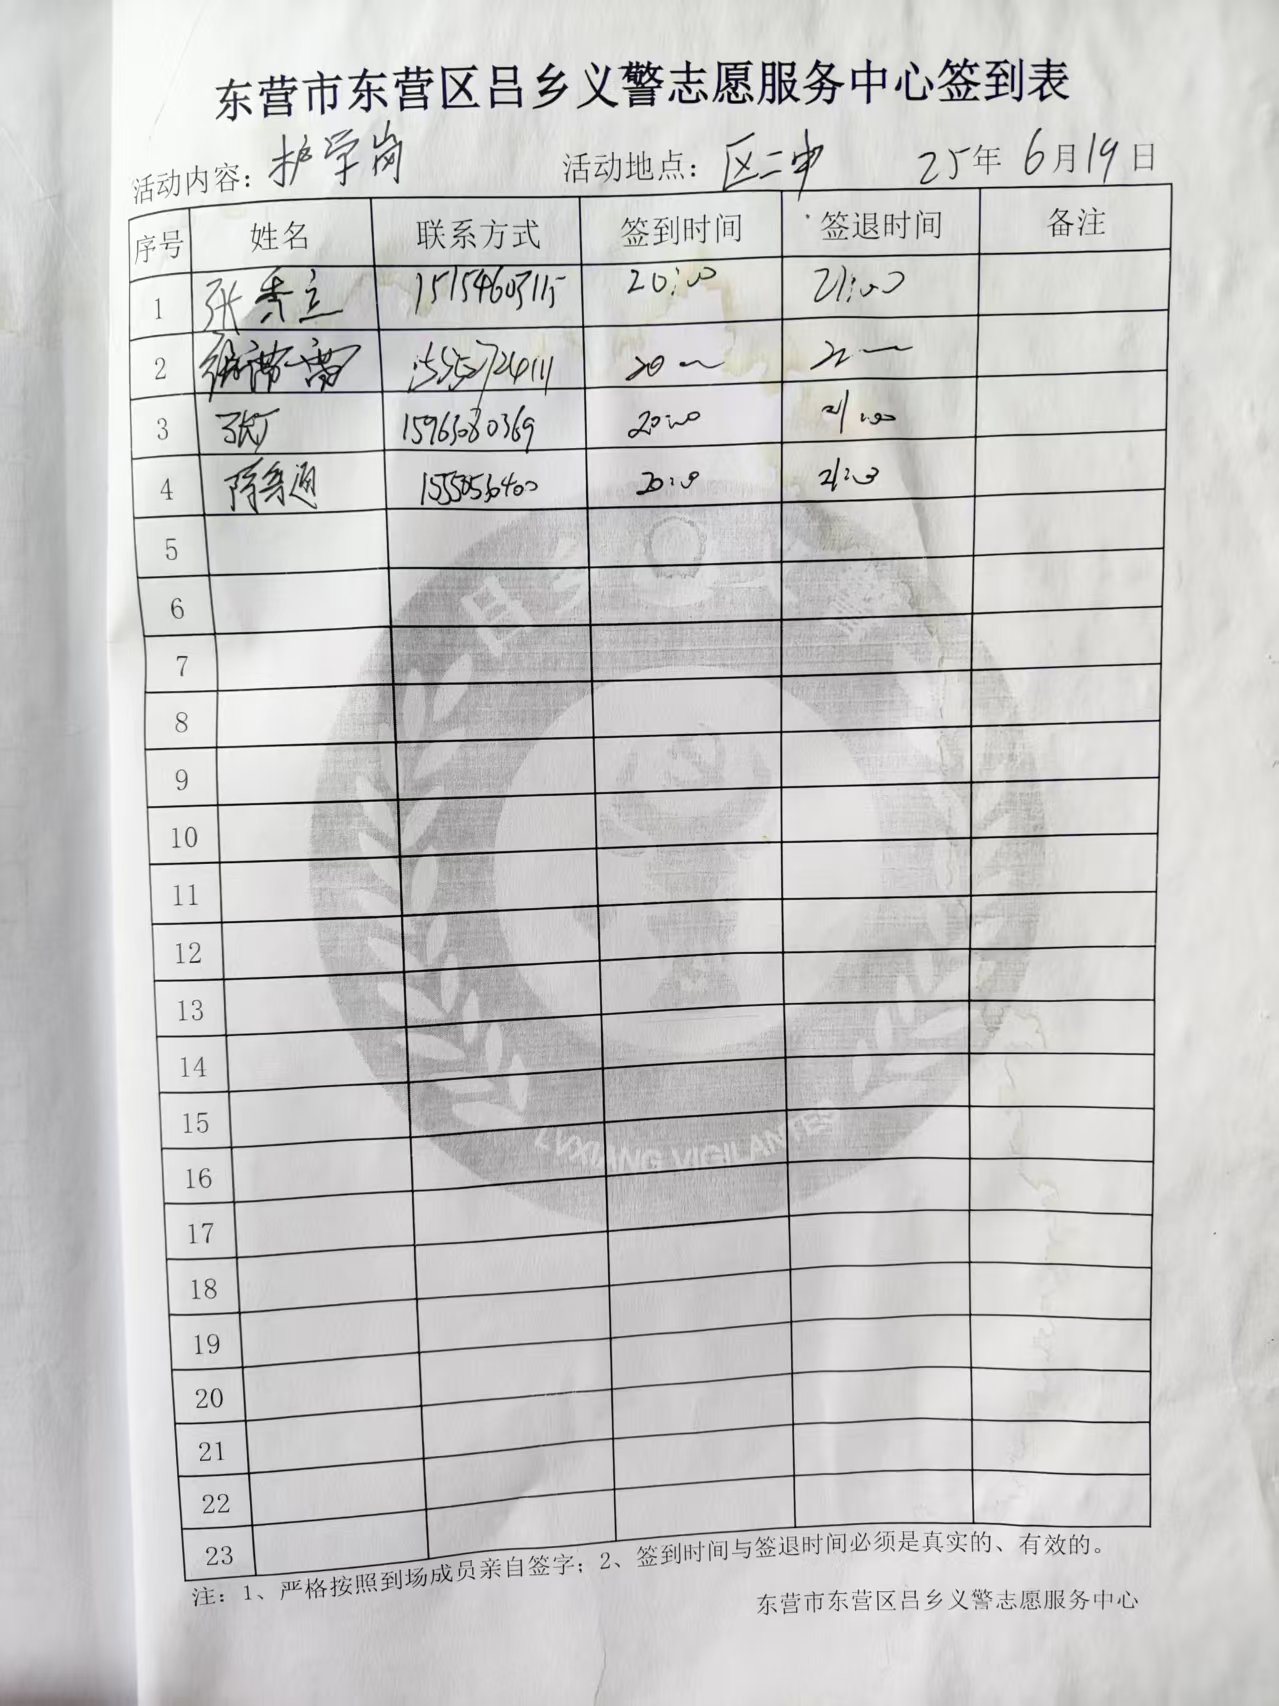 东营市东营区吕乡义警志愿服务中心签到表
活动内容：护学岗 活动地点：区二中 25年 6月19日
序号 姓名 联系方式 签到时间 签退时间 备注
1 张秀立 20:00 21:00
2
3 张广 15963080369 20:00 21:00
4 20:00 21:00
5
6
7
8
9
10
11
12
13
14
15
16
17
18
19
20
21
22
23
注：1、严格按照到场成员亲自签字；2、签到时间与签退时间必须是真实的、有效的。
东营市东营区吕乡义警志愿服务中心
吕乡义警
LVXIANG VIGILANTES